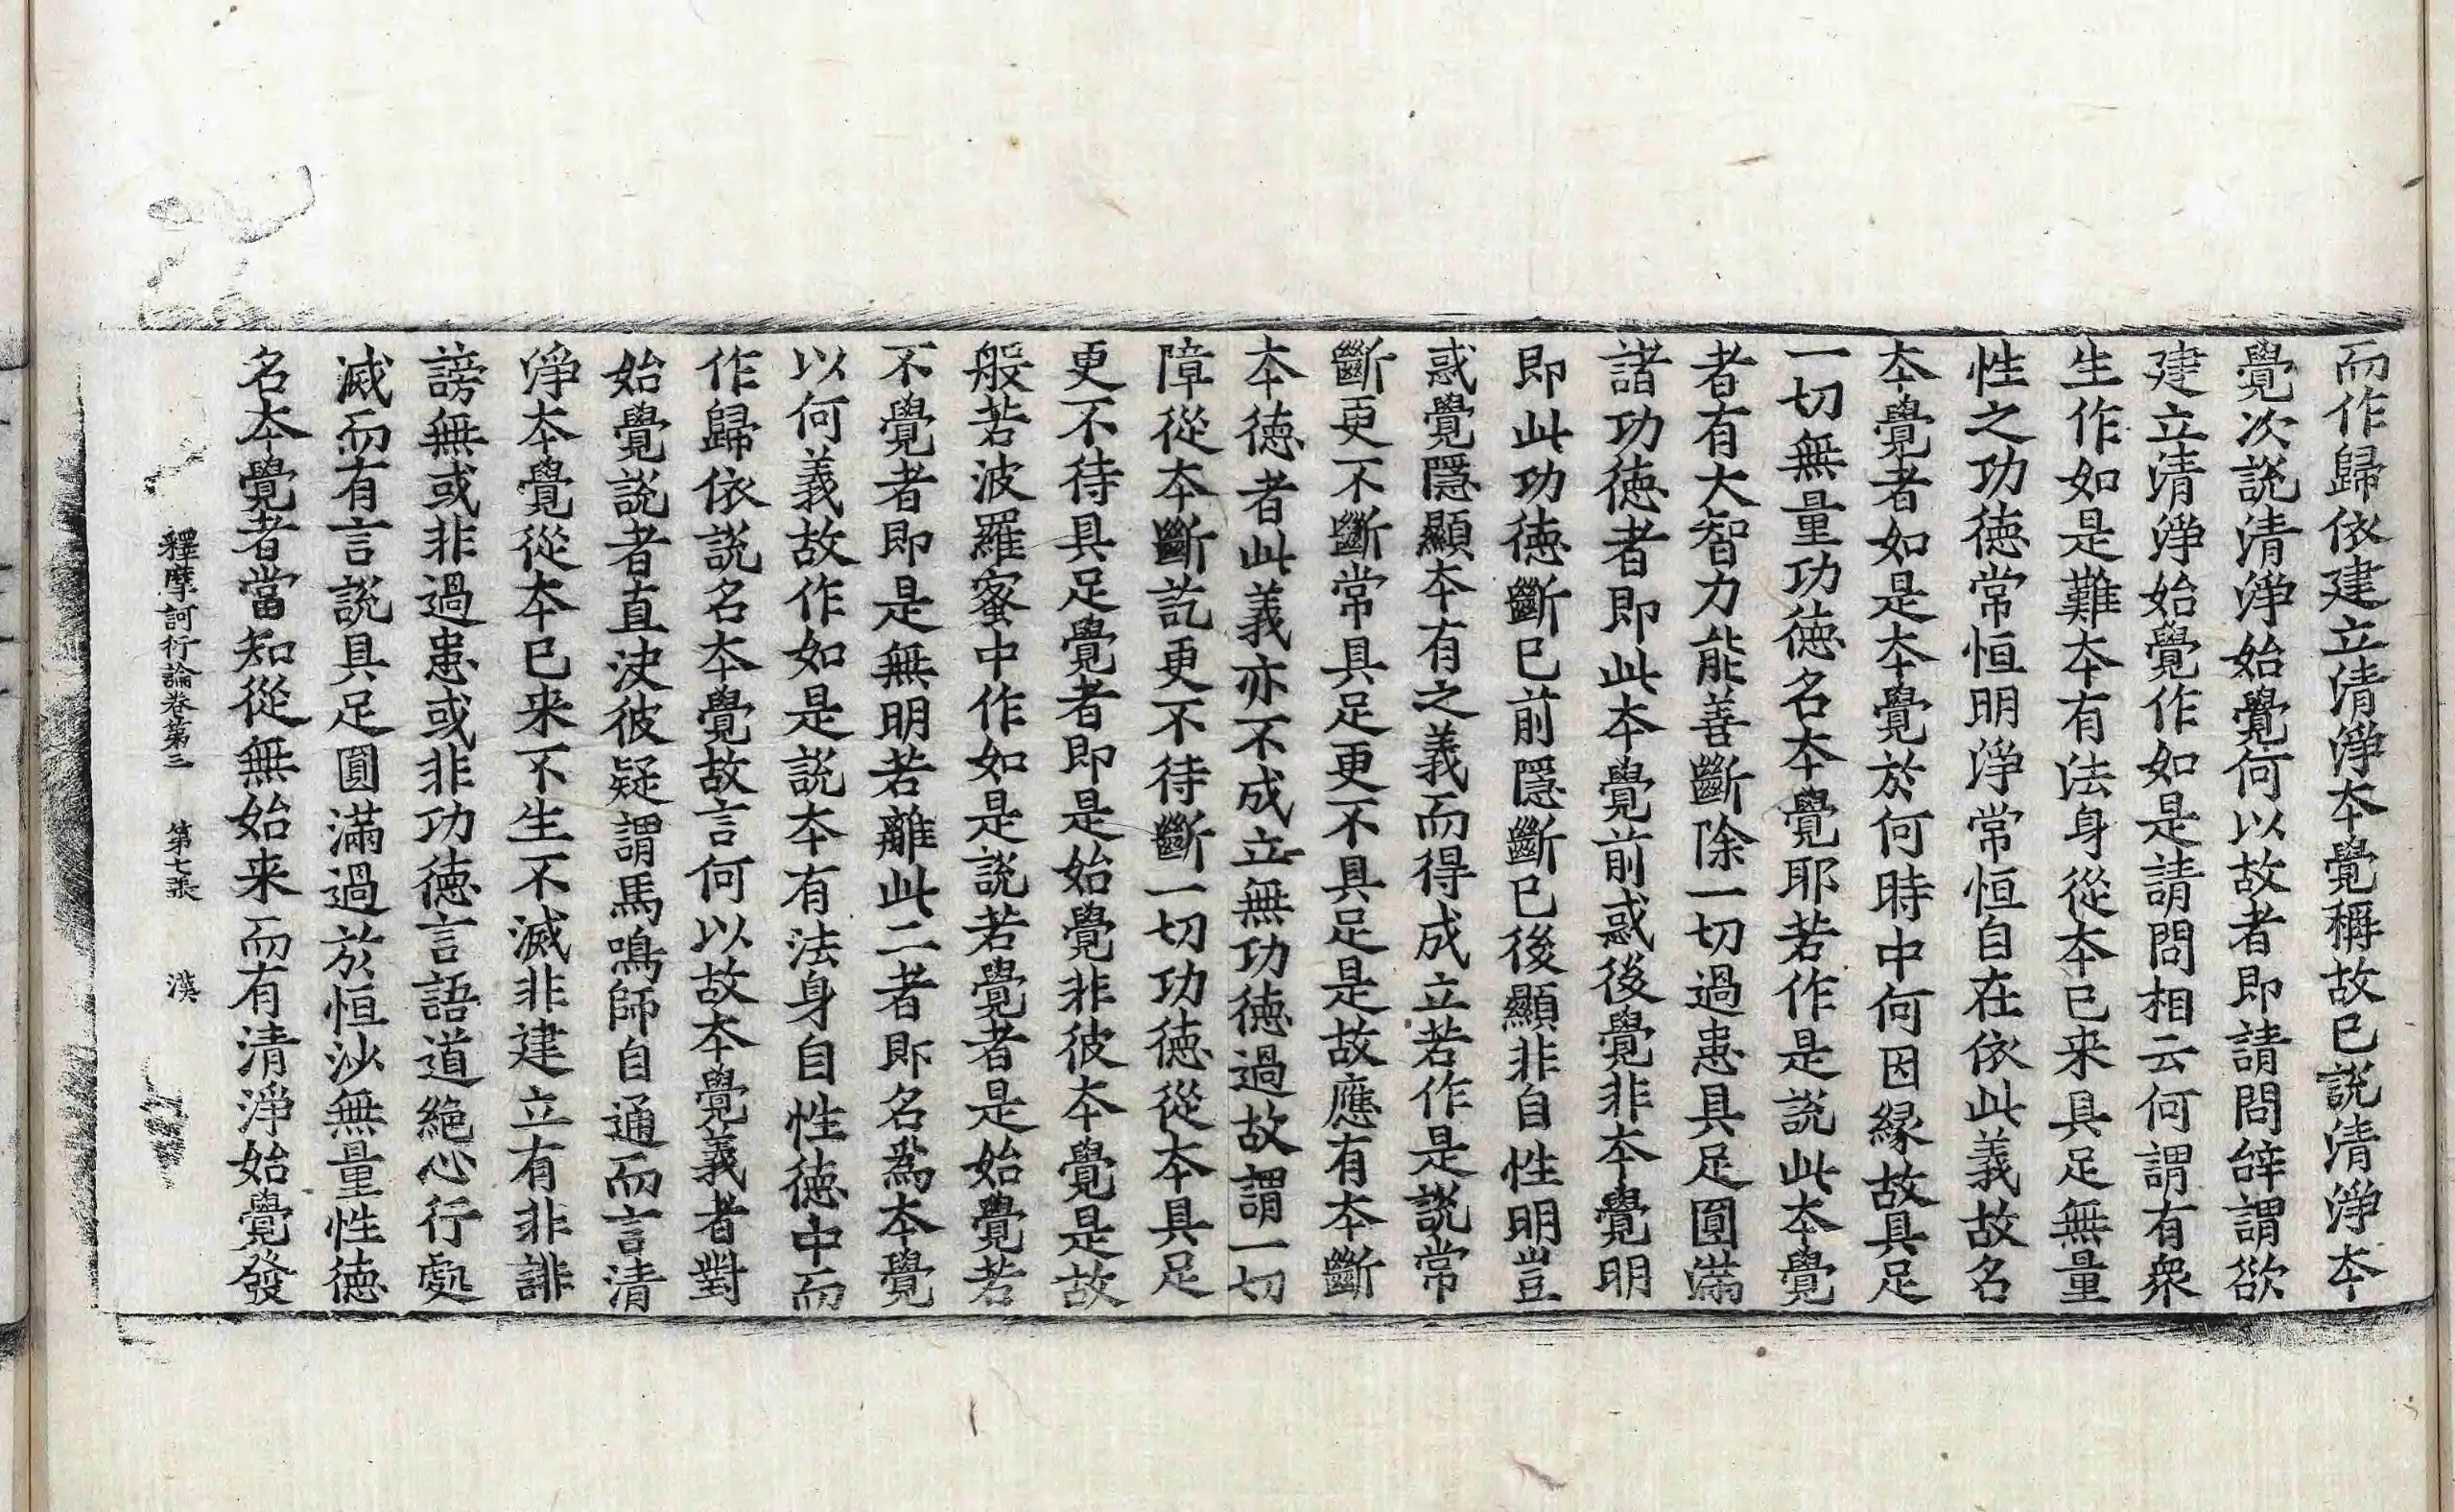 而作歸依建立清淨本覺稱故已說清淨本
覺次說清淨始覺何以故者即請問辞謂欲
建立清淨始覺作如是請問相云何謂有衆
生作如是難本有法身從本已来具足無量
性之功徳常恒明淨常恒自在依此義故名
本覺者如是本覺於何時中何因緣故具足
一切無量功徳名本覺耶若作是說此本覺
者有大智力能善斷除一切過患具足圓滿
諸功徳者即此本覺前惑後覺非本覺明
即此功徳斷已前隱斷已後顯非自性明豈
惑覺隱顯本有之義而得成立若作是說常
斷更不斷常具足更不具足是故應有本斷
本徳者此義亦不成立無功徳過故謂一切
障從本斷訖更不待斷一切功徳從本具足
更不待具足覺者即是始覺非彼本覺是故
般若波羅蜜中作如是說若覺者是始覺若
不覺者即是無明若離此二者即名為本覺
以何義故作如是說本有法身自性徳中而
作歸依說名本覺故言何以故本覺義者對
始覺說者直決彼疑謂馬鳴師自通而言清
淨本覺從本已来不生不滅非建立有非誹
謗無或非過患或非功徳言語道絕心行處
滅而有言說具足圓滿過於恒沙無量性徳
名本覺者當知從無始来而有清淨始覺發
釋摩訶衍論卷第三　第七張　漢